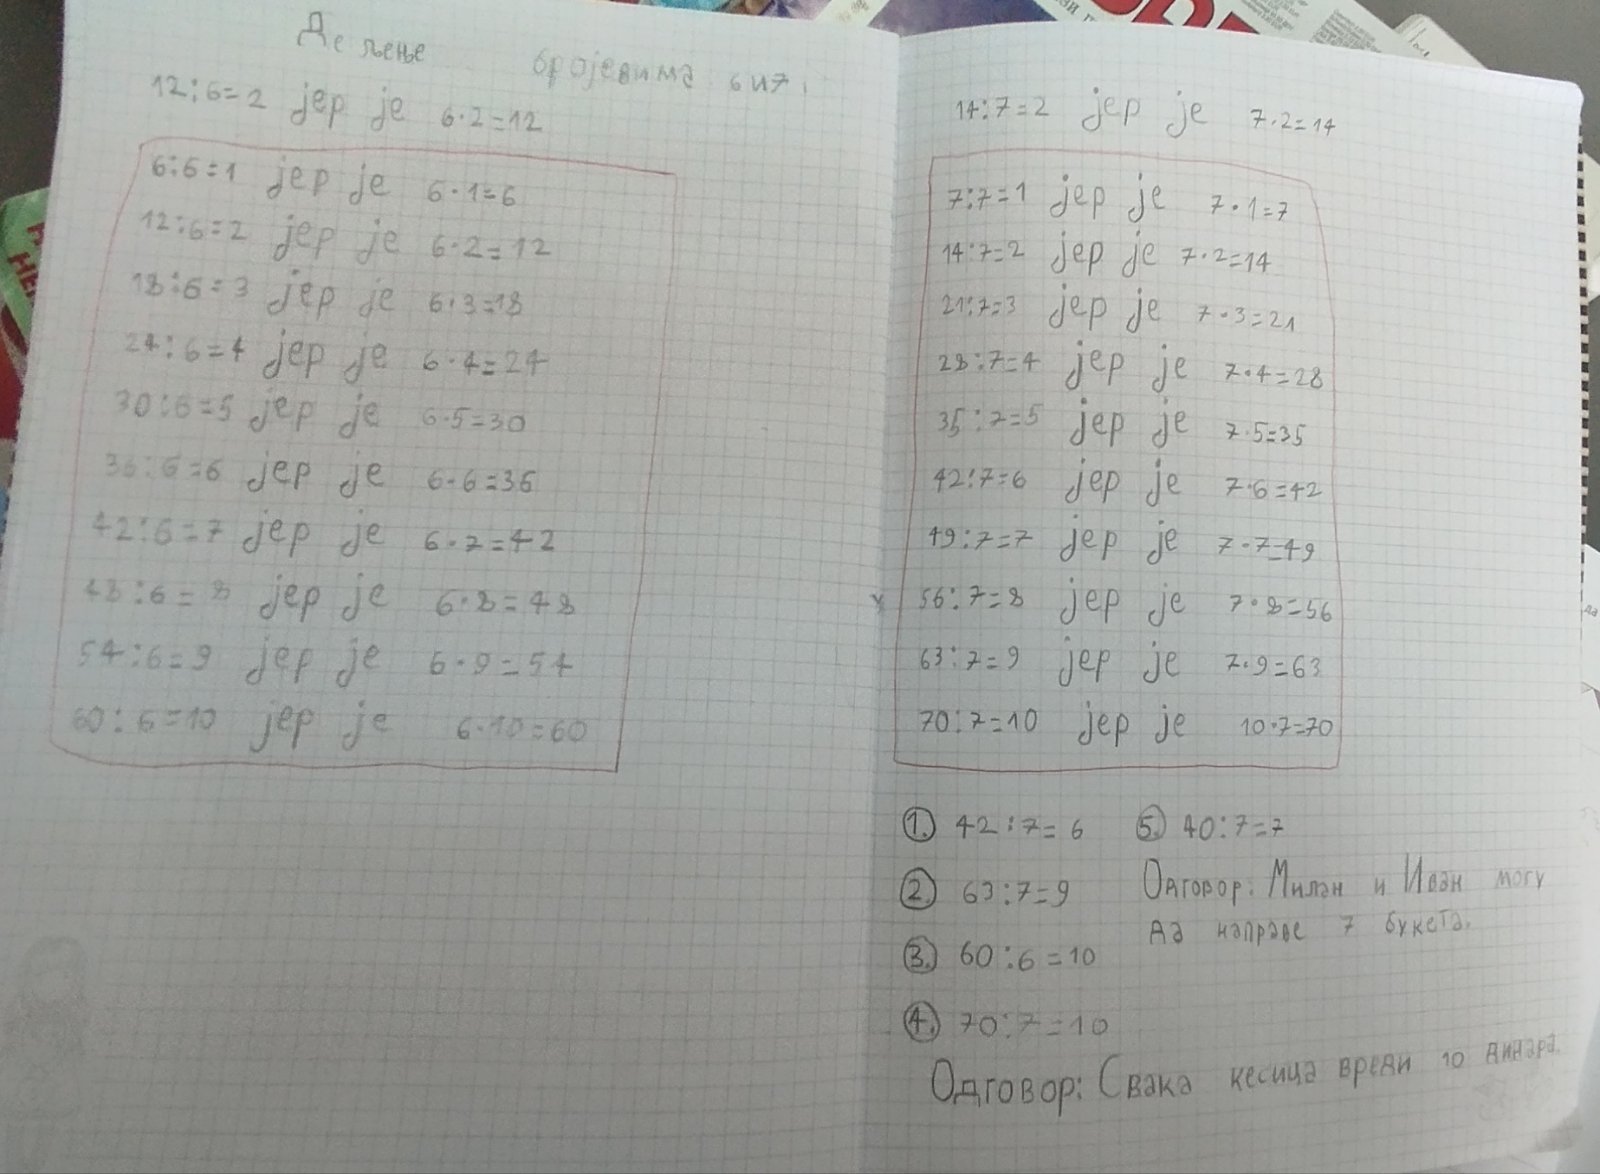 Дељење бројевима 6 и 7.
12:6=2 јер је 6·2=12
6:6=1 јер је 6·1=6
12:6=2 јер је 6·2=12
18:6=3 јер је 6·3=18
24:6=4 јер је 6·4=24
30:6=5 јер је 6·5=30
36:6=6 јер је 6·6=36
42:6=7 јер је 6·7=42
48:6=8 јер је 6·8=48
54:6=9 јер је 6·9=54
60:6=10 јер је 6·10=60
14:7=2 јер је 7·2=14
7:7=1 јер је 7·1=7
14:7=2 јер је 7·2=14
21:7=3 јер је 7·3=21
28:7=4 јер је 7·4=28
35:7=5 јер је 7·5=35
42:7=6 јер је 7·6=42
49:7=7 јер је 7·7=49
56:7=8 јер је 7·8=56
63:7=9 јер је 7·9=63
70:7=10 јер је 10·7=70
1. 42:7=6
2. 63:7=9
3. 60:6=10
4. 70:7=10
Одговор: Свака кесица вреди 10 динара.
5. 40:7=7
Одговор: Милан и Иван могу
да направе 7 букета.